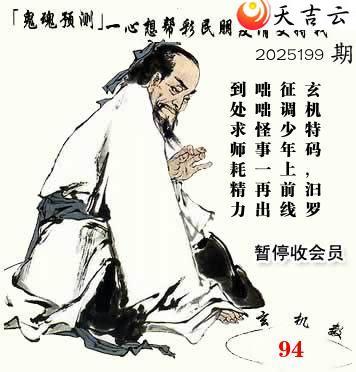 「鬼魂预测」一心想帮彩民朋友
天吉云
2025199 期
玄机特码,汨罗
征调少年上前线
咄咄怪事一再出
到处求师耗精力
暂停收会员
玄机
94